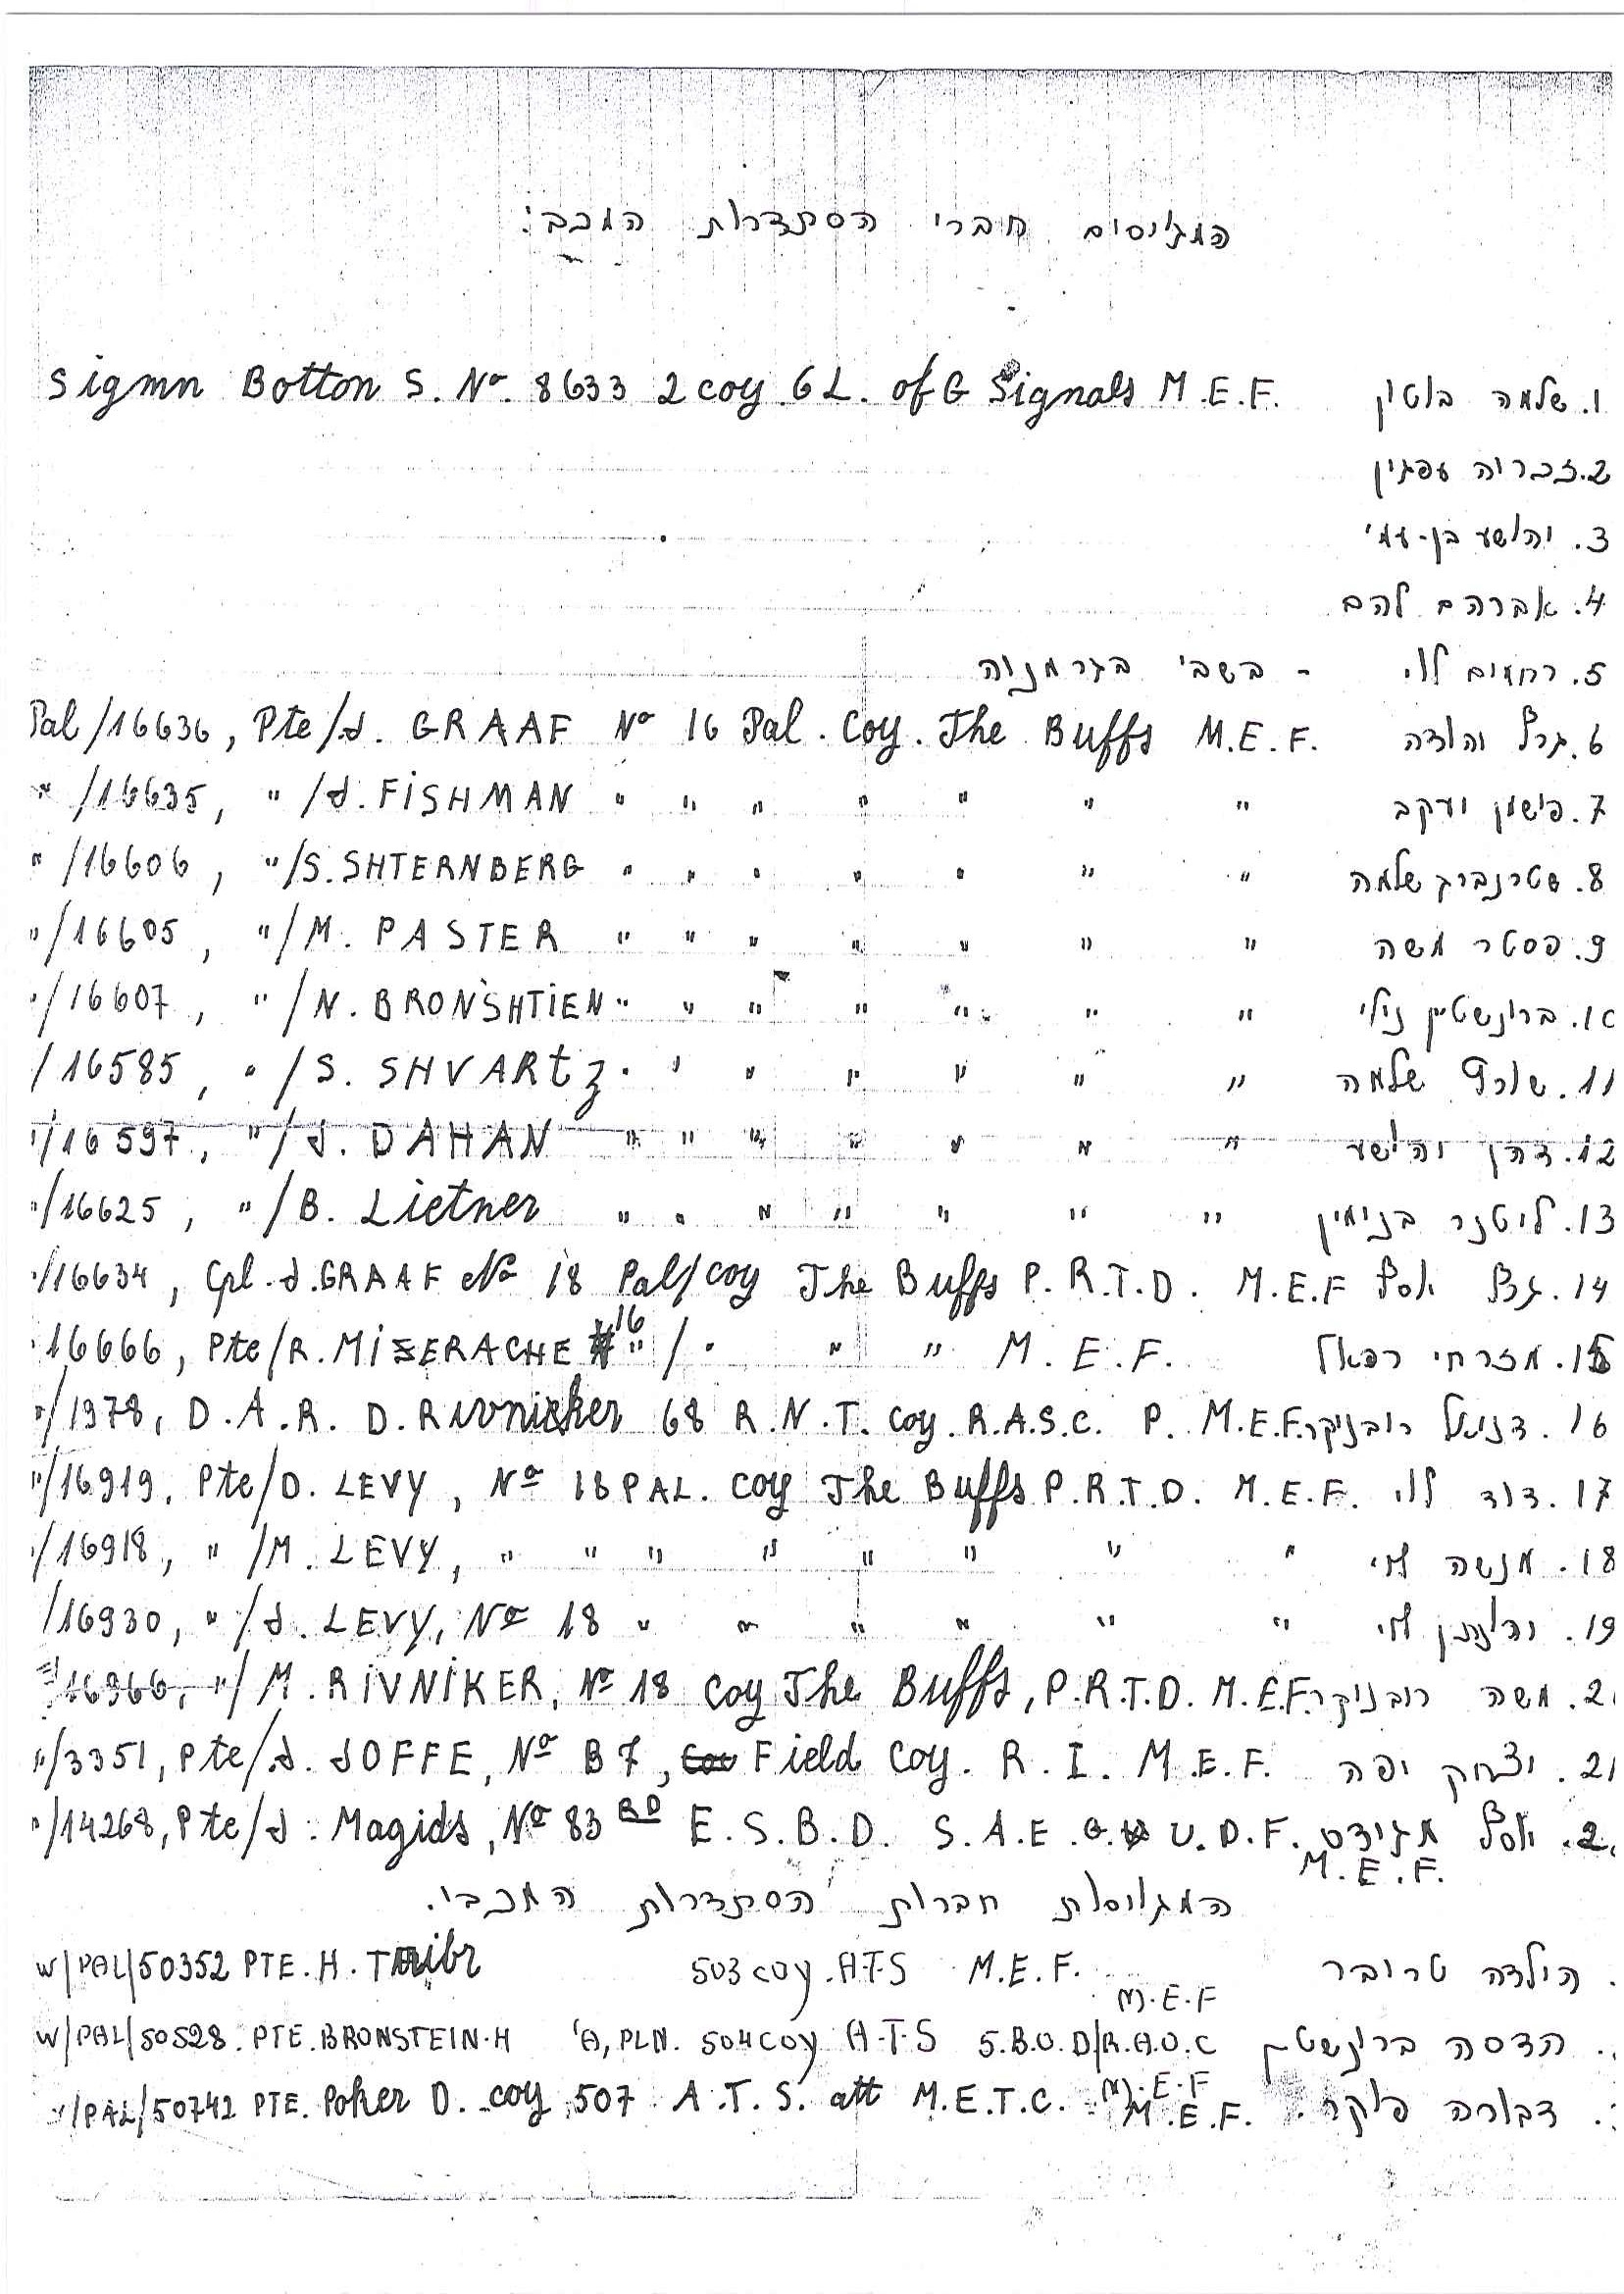 המגויסים חברי הסתדרות המכבי:
1. שלמה בוטון Sigmn Botton S. No. 8633 2 coy. G L. of G Signals M.E.F.
2. זכריה עפגין
3. יהושע בן-עמי
4. אברהם להב
5. רחמים לוי - בשבי בגרמניה
6. גרף יהודה Pal/16636, Pte/J. GRAAF No 16 Pal. Coy. The Buffs M.E.F.
7. פישמן יעקב " /16635, " /J. FISHMAN " " " " " " "
8. שטרנברג שלמה " /16606, " /S. SHTERNBERG " " " " " " "
9. פסטר משה " /16605, " /M. PASTER " " " " " " "
10. ברונשטין נילי " /16607, " /N. BRONSHTIEN " " " " " " "
11. שורץ שלמה /16585, " /S. SHVARtz " " " " " " "
12. דהן יהושע " /16597, " /J. DAHAN " " " " " " "
13. ליטנר בנימין " /16625, " /B. Lietner " " " " " " "
14. גרף יוסף " /16634, Cpl. J. GRAAF No 18 Pal/coy The Buffs P.R.T.D. M.E.F
15. מזרחי רפאל 16666, Pte/R. MIZERACHE 16 " / " " " M.E.F.
16. דניאל ריבניקר " /1978, D.A.R. D. Rivnicker 68 R.N.T. coy. R.A.S.C. P. M.E.F.
17. דוד לוי " /16919, Pte/D. LEVY, No 18 PAL. coy The Buffs P.R.T.D. M.E.F.
18. מנשה לוי " /16918, " /M. LEVY, " " " " " " " "
19. יהונתן לוי /16930, " /J. LEVY, No 18 " " " " " "
2. משה ריבניקר 16966, " / M. RIVNIKER, No 18 coy The Buffs, P.R.T.D. M.E.F.
21. יצחק יפה " /3351, Pte/J. JOFFE, No B7, Field Coy. R.I. M.E.F.
2. יוסף מגידס " /14268, Pte/J. Magids, No 83 RD E.S.B.D. S.A.E.C. U.D.F. M.E.F.
המגויסות חברות הסתדרות המכבי.
הילדה טרויבר W/PAL/50352 PTE. H. 503 coy. A.T.S M.E.F.
הדסה ברונשטין W/PAL/50528. PTE. BRONSTEIN. H 'A, PLN. 504 coy A.T.S 5.B.O.D/R.A.O.C M.E.F
דבורה פוקר /PAL/50742 PTE. Poker D. coy 507 A.T.S. att M.E.T.C. M.E.F M.E.F.